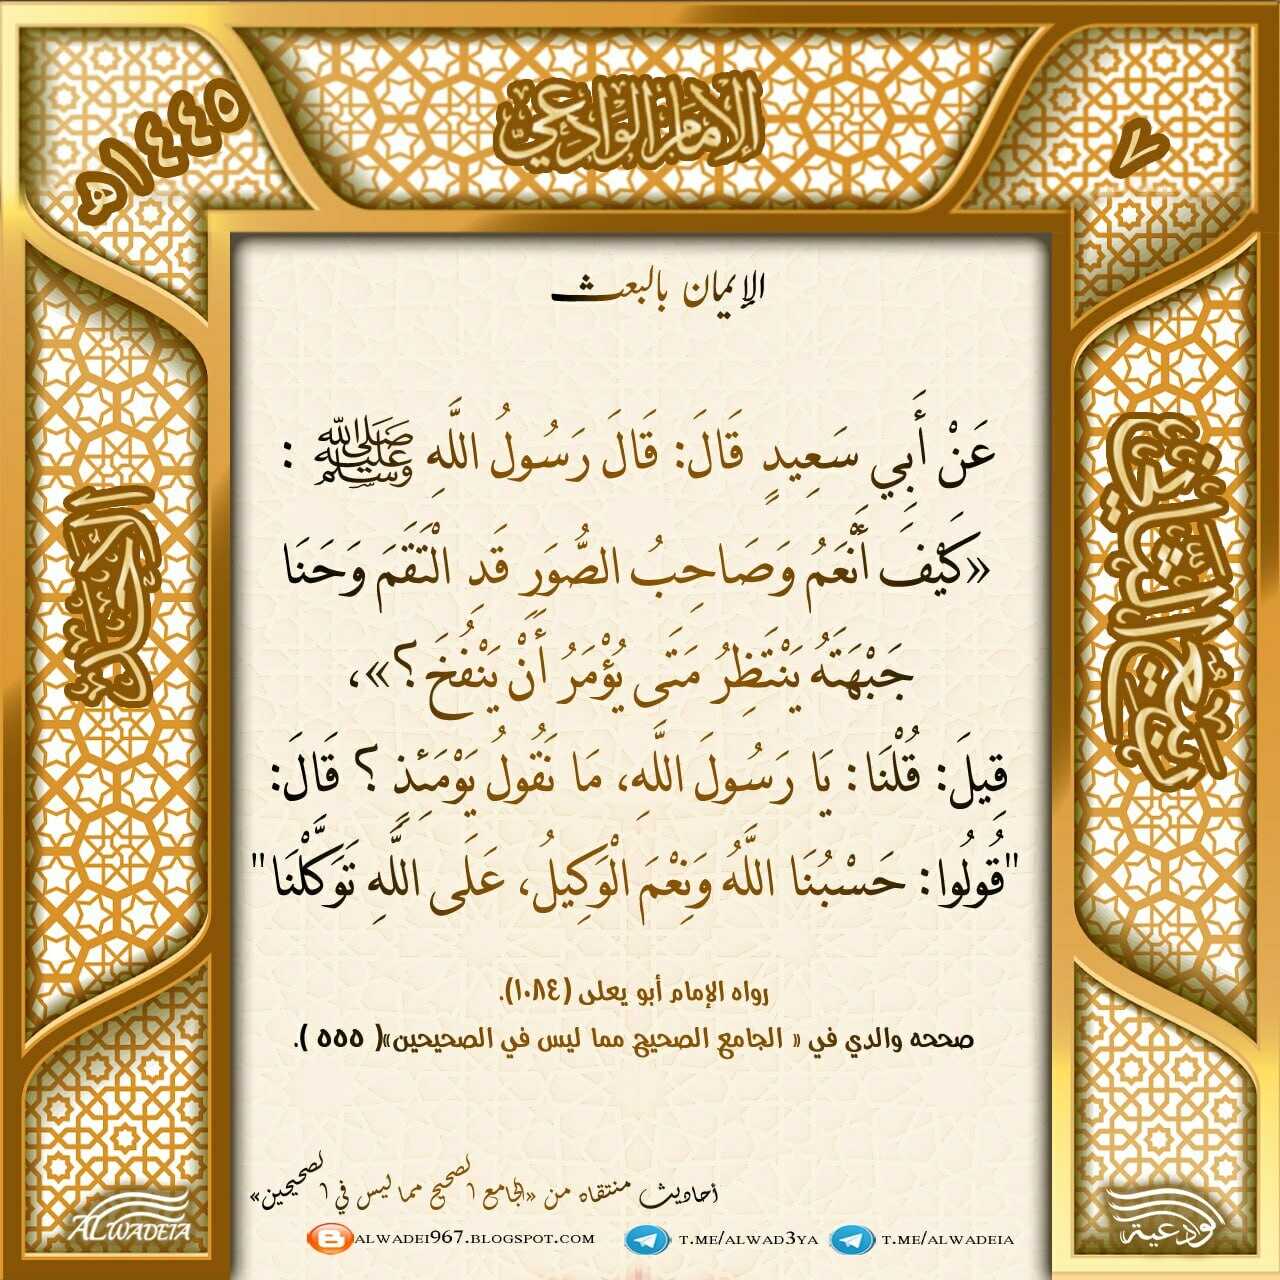 الإمام الوادعي
٧
١٤٤٥هـ
ربيع الثاني
الأحد
الإيمان بالبعث
عَنْ أَبِي سَعِيدٍ قَالَ: قَالَ رَسُولُ اللَّهِ ﷺ :
«كَيْفَ أَنْعَمُ وَصَاحِبُ الصُّوَرِ قَدِ الْتَقَمَ وَحَنَا
جَبْهَتَهُ يَنْتَظِرُ مَتَى يُؤْمَرُ أَنْ يَنْفُخَ؟»،
قِيلَ: قُلْنَا: يَا رَسُولَ اللَّهِ، مَا نَقُولُ يَوْمَئِذٍ؟ قَالَ:
"قُولُوا: حَسْبُنَا اللَّهُ وَنِعْمَ الْوَكِيلُ، عَلَى اللَّهِ تَوَكَّلْنَا"
رواه الإمام أبو يعلى (١٠٨٤).
صححه والدي في « الجامع الصحيح مما ليس في الصحيحين»( ٥٥٥ ).
أحاديث منتقاه من «الجامع الصحيح مما ليس في الصحيحين»
ALWADEI967.BLOGSPOT.COM T.ME/ALWAD3YA T.ME/ALWADEIA
ALWADEIA
الودعية